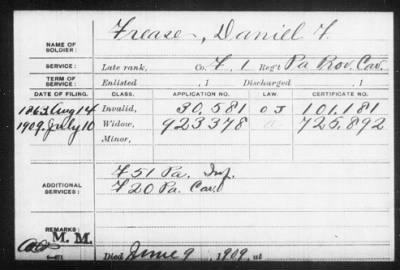 NAME OF SOLDIER: Frease, Daniel F.
SERVICE: Late rank, Co. F, 1 Reg't Pa Rov. Cav.
TERM OF SERVICE: Enlisted , 1 Discharged , 1
DATE OF FILING. CLASS. APPLICATION NO. LAW. CERTIFICATE NO.
1863 Aug 14 Invalid, 30,581 O J 101,181
1909. July 10 Widow, 923378 a 725,892
Minor,
ADDITIONAL SERVICES: F 51 Pa. Inf.
F 20 Pa. Cav.
REMARKS:
M. M.
Died June 9, 1909, at